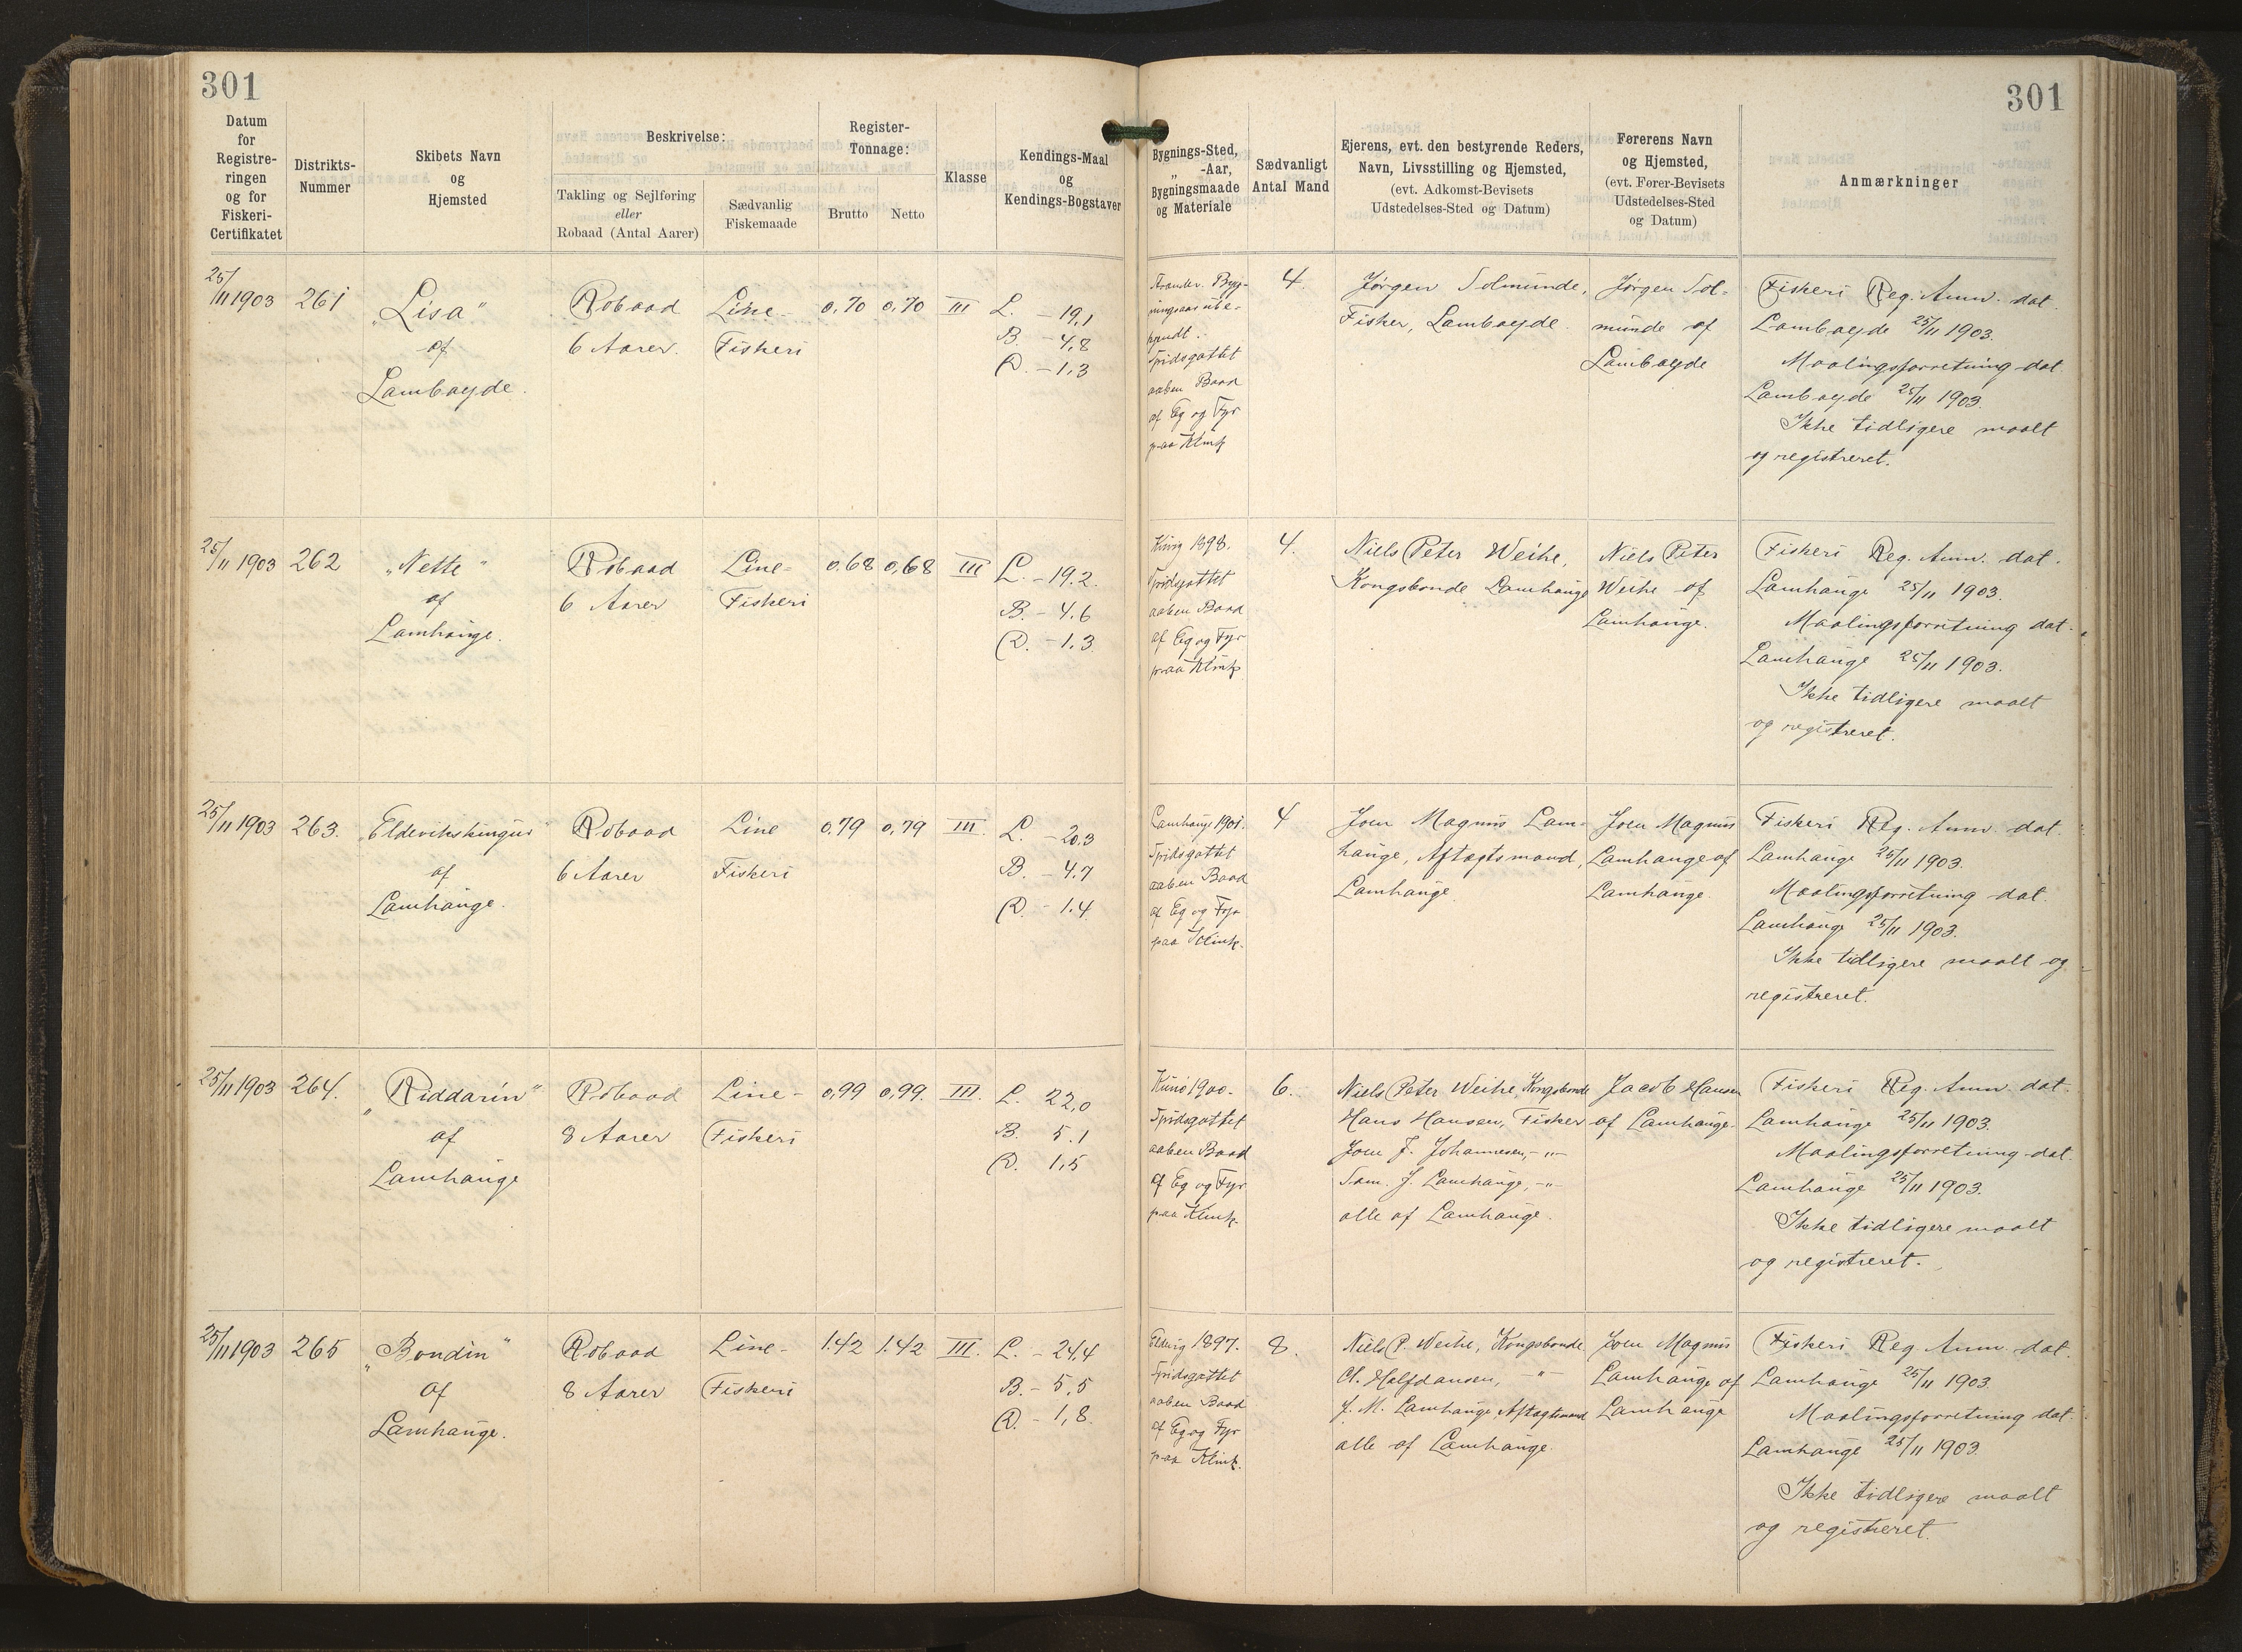 301
301
Datum
for
Registre-
ringen
og for
Fiskeri-
Certifikatet
Distrikts-
Nummer
Skibets Navn
og
Hjemsted
Beskrivelse:
Takling og Sejlføring
eller
Robaad (Antal Aarer)
Sædvanlig
Fiskemaade
Register-
Tonnage:
Brutto
Netto
Klasse
Kendings-Maal
og
Kendings-Bogstaver
Bygnings-Sted,
„ -Aar,
Bygningsmaade
og Materiale
Sædvanligt
Antal Mand
Ejerens, evt. den bestyrende Reders,
Navn, Livsstilling og Hjemsted,
(evt. Adkomst-Bevisets
Udstedelses-Sted og Datum)
Førerens Navn
og Hjemsted,
(evt. Fører-Bevisets
Udstedelses-Sted
og Datum)
Anmærkninger
25/11 1903
261
„Lisa“
af
Lambaejde.
Robaad
6 Aarer.
Line-
Fiskeri
0,70
0,70
III
L. – 19,1
B. – 4,8
D. – 1,3
Spidsgattet
aaben Baad
af Eg og Fyr
paa Klink
4.
Jørgen Solmunde,
Fisker, Lambaejde.
Jørgen Sol-
munde af
Lambaejde
Fiskeri Reg. Anm. dat.
Lambaejde 25/11 1903.
Maalingsforretning dat.
Lambaejde 25/11 1903.
Ikke tidligere maalt
og registreret.
25/11 1903
262
„Nette“
af
Lamhauge.
Robaad
6 Aarer
Line-
Fiskeri
0.68
0,68
III
L. – 19.2.
B. – 4.6
D. – 1.3.
1898.
Spidsgattet
aaben Baad
af Eg og Fyr
paa Klink
4.
Niels Peter Weihe,
Kongsbonde Lamhauge
Niels Peter
Weihe af
Lamhauge.
Fiskeri Reg. Anm. dat.
Lamhauge 25/11 1903.
Maalingsforretning dat.
Lamhauge 25/11 1903.
Ikke tidligere maalt
og registreret.
25/11 1903
263.
„Eldevikskingur“
af
Lamhauge.
Robaad
6 Aarer
Line
Fiskeri
0,79
0,79
III.
L. – 20,3
B. – 4.7
D. – 1.4.
Lamhauge 1901.
Spidsgattet
aaben Baad
af Eg og Fyr
paa Klink.
4
Joen Magnus Lam-
hauge, Aftægtsmand,
Lamhauge.
Joen Magnus
Lamhauge af
Lamhauge.
Fiskeri Reg. Anm. dat.
Lamhauge 25/11 1903.
Maalingsforretning dat.
Lamhauge 25/11 1903.
Ikke tidligere maalt og
registreret.
25/11 1903
264.
„Riddarin“
af
Lamhauge
Robaad
8 Aarer
Line-
Fiskeri
0,99
0,99.
III.
L. 22,0
B. 5.1
D. 1,5
1900.
Spidsgattet
aaben Baad
af Eg og Fyr
paa Klink.
6.
Niels Peter Weihe, Kongsbonde
Hans Hansen, Fisker
Joen J. Johannesen, – „ –
Sam. J. Lamhauge, – „ –
alle af Lamhauge.
Jacob Hansen
af Lamhauge.
Fiskeri Reg. Anm. dat.
Lamhauge 25/11 1903.
Maalingsforretning dat.
Lamhauge 25/11 1903.
Ikke tidligere maalt
og registreret.
25/11 1903
265
„Bondin“
af
Lamhauge.
Robaad
8 Aarer
Line-
Fiskeri
1.42
1.42
III.
L. – 24,4
B. – 5,5
D. – 1,8.
1897.
Spidsgattet
aaben Baad
af Eg og Fyr
paa Klink.
8.
Niels P. Weihe, Kongsbonde.
Halfdansen, – „ –
J. M. Lamhauge, Aftægtsmand
alle af Lamhauge.
Joen Magnus
Lamhauge af
Lamhauge
Fiskeri Reg. Anm. dat.
Lamhauge 25/11 1903.
Maalingsforretning dat.
Lamhauge 25/11 1903.
Ikke tidligere maalt
og registreret.